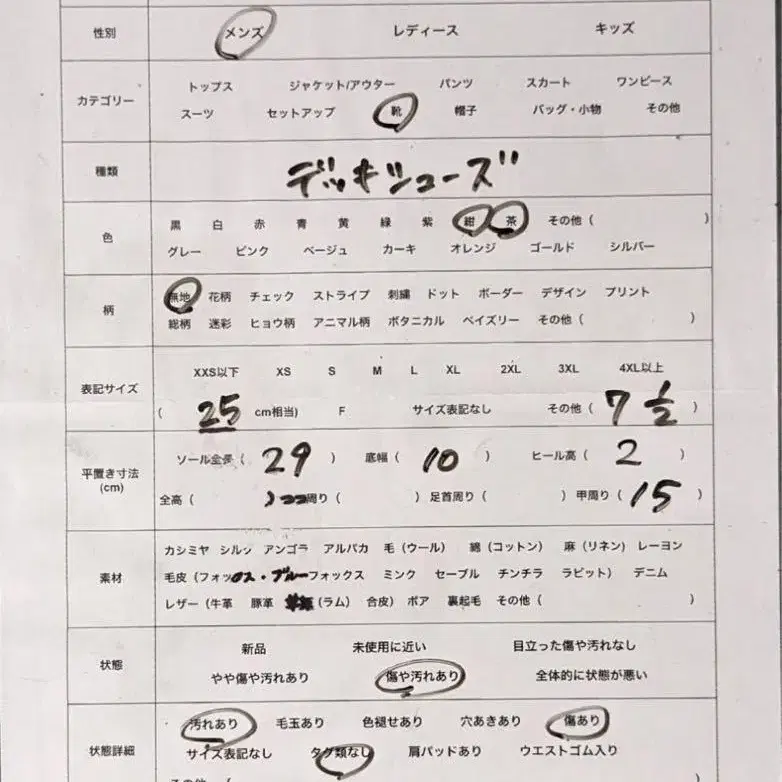 性別 メンズ レディース キッズ
カテゴリー トップス ジャケット/アウター パンツ スカート ワンピース
スーツ セットアップ 靴 帽子 バッグ・小物 その他
種類 デッキシューズ
色 黒 白 赤 青 黄 緑 紫 紺 茶 その他 ( )
グレー ピンク ベージュ カーキ オレンジ ゴールド シルバー
柄 無地 花柄 チェック ストライプ 刺繍 ドット ボーダー デザイン プリント
総柄 迷彩 ヒョウ柄 アニマル柄 ボタニカル ペイズリー その他 ( )
表記サイズ XXS以下 XS S M L XL 2XL 3XL 4XL以上
( 25 cm相当) F サイズ表記なし その他 ( 7 1/2 )
平置き寸法 (cm) ソール全長 ( 29 ) 底幅 ( 10 ) ヒール高 ( 2 )
全高 ( ) 周り ( ) 足首周り ( ) 甲周り ( 15 )
素材 カシミヤ シルク アンゴラ アルパカ 毛 (ウール) 綿 (コットン) 麻 (リネン) レーヨン
毛皮 (フォックス・ブルーフォックス ミンク セーブル チンチラ ラビット) デニム
レザー (牛革 豚革 (ラム) 合皮) ボア 裏起毛 その他 ( )
状態 新品 未使用に近い 目立った傷や汚れなし
やや傷や汚れあり 傷や汚れあり 全体的に状態が悪い
状態詳細 汚れあり 毛玉あり 色褪せあり 穴あきあり 傷あり
サイズ表記なし タグ類なし 肩パッドあり ウエストゴム入り
その他 (